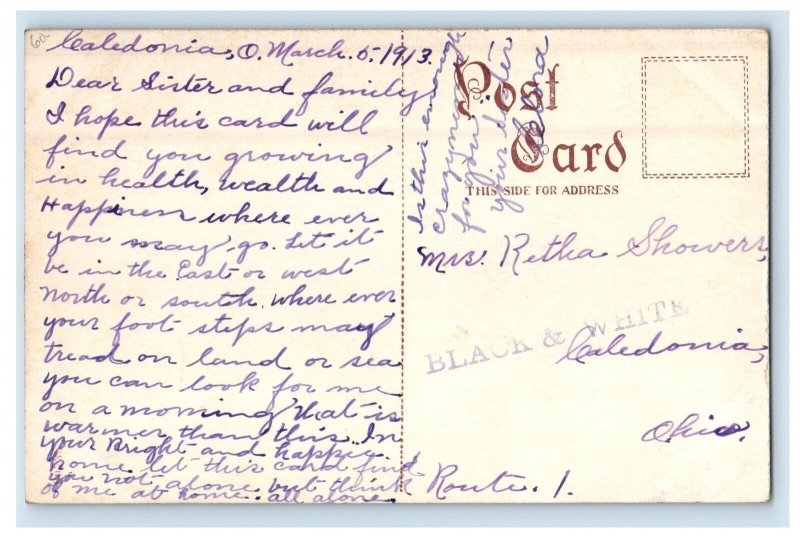 60-
Caledonia, O. March. 5. 1913.
Dear Sister and family
I hope this card will
find you growing
in health, wealth and
Happiness where ever
you may go. Let it
be in the East or west
North or south. where ever
your foot steps may
tread on land or sea
you can look for me
on a morning that is
warmer than this. In
your Bright and happie.
home let this card find
you not alone but think
of me at home. all alone.
Is this enough
crazyness
for you.
your sister
Post
Card
THIS SIDE FOR ADDRESS
Mrs. Retha Showers,
BLACK & WHITE
Caledonia,
Ohio.
Route. 1.